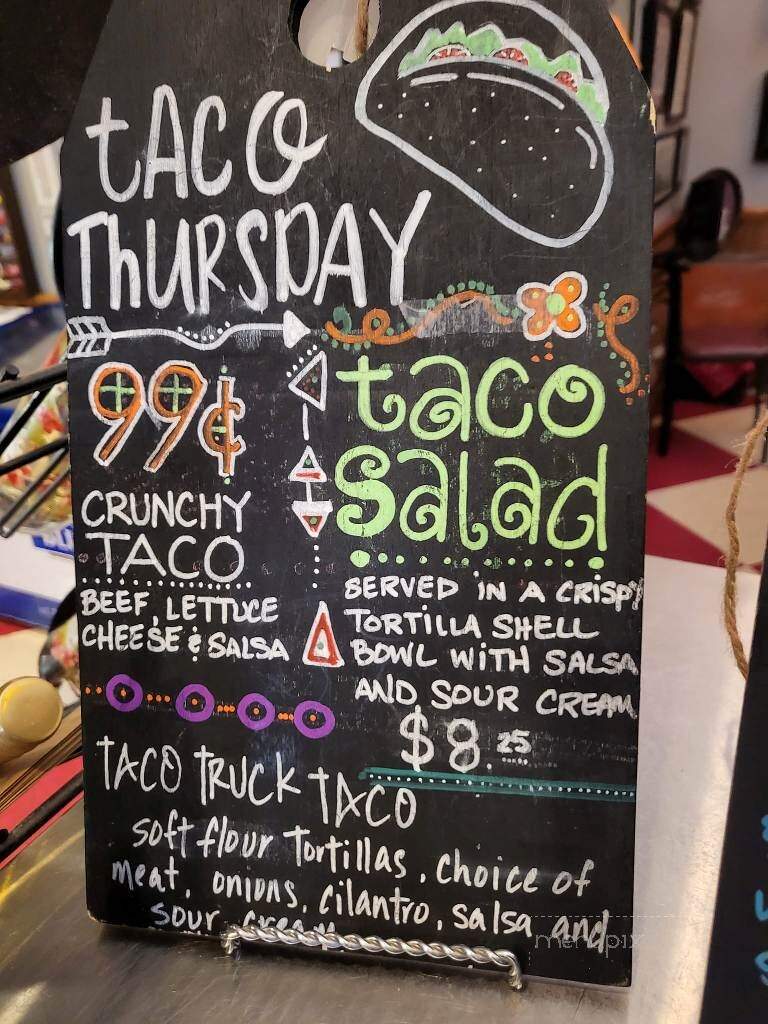 tACO
ThURSDAY
99¢
CRUNCHY
TACO
BEEF, LETTUCE
CHEESE & SALSA
taco
salad
SERVED IN A CRISPY
TORTILLA SHELL
BOWL WITH SALSA
AND SOUR CREAM
$8.25
TACO TRUCK TACO
soft flour Tortillas, choice of
meat, onions, cilantro, salsa and
sour cream
menupix